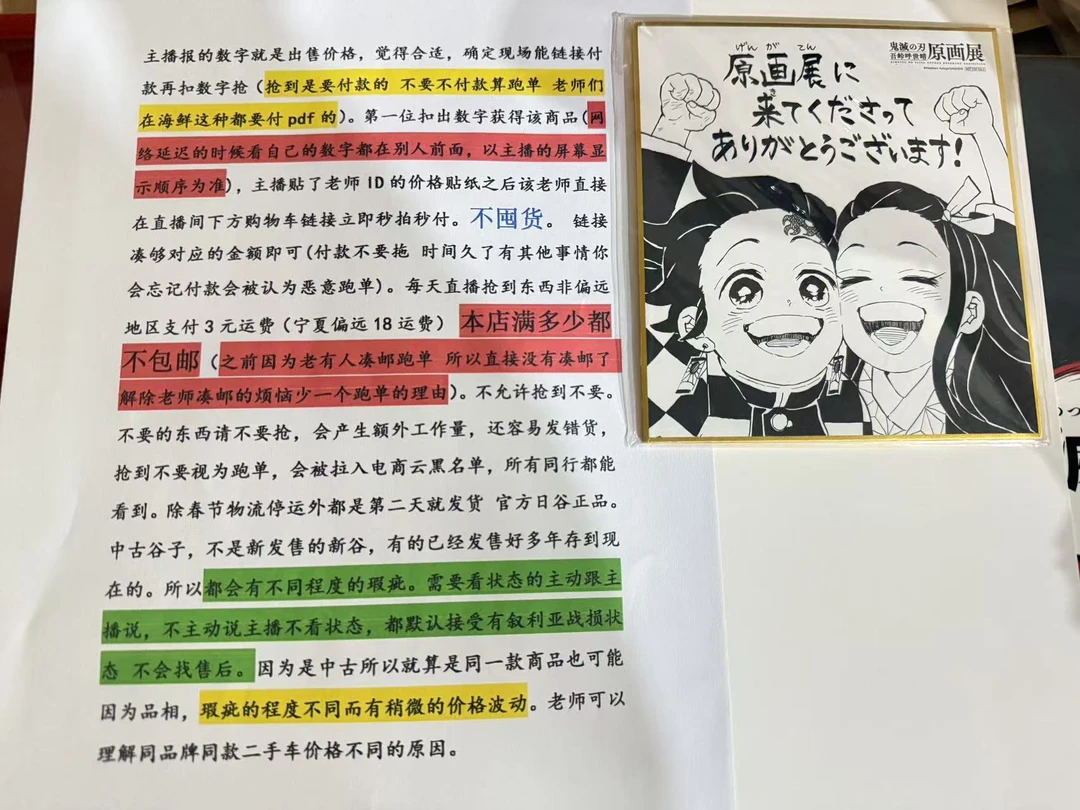 主播报的数字就是出售价格，觉得合适，确定现场能链接付
款再扣数字抢（抢到是要付款的 不要不付款算跑单 老师们
在海鲜这种都要付 pdf 的）。第一位扣出数字获得该商品(网
络延迟的时候看自己的数字都在别人前面，以主播的屏幕显
示顺序为准)，主播贴了老师 ID 的价格贴纸之后该老师直接
在直播间下方购物车链接立即秒拍秒付。不囤货。 链接
凑够对应的金额即可(付款不要拖 时间久了有其他事情你
会忘记付款会被认为恶意跑单)。每天直播抢到东西非偏远
地区支付 3 元运费（宁夏偏远 18 运费） 本店满多少都
不包邮（之前因为老有人凑邮跑单 所以直接没有凑邮了
解除老师凑邮的烦恼少一个跑单的理由)。不允许抢到不要。
不要的东西请不要抢，会产生额外工作量，还容易发错货，
抢到不要视为跑单，会被拉入电商云黑名单，所有同行都能
看到。除春节物流停运外都是第二天就发货 官方日谷正品。
中古谷子，不是新发售的新谷，有的已经发售好多年存到现
在的。所以都会有不同程度的瑕疵。需要看状态的主动跟主
播说，不主动说主播不看状态，都默认接受有叙利亚战损状
态 不会找售后。因为是中古所以就算是同一款商品也可能
因为品相，瑕疵的程度不同而有稍微的价格波动。老师可以
理解同品牌同款二手车价格不同的原因。
鬼滅の刃
吾峠呼世晴
原画展
げんがてん
原画展に
来てくださって
ありがとうございます!